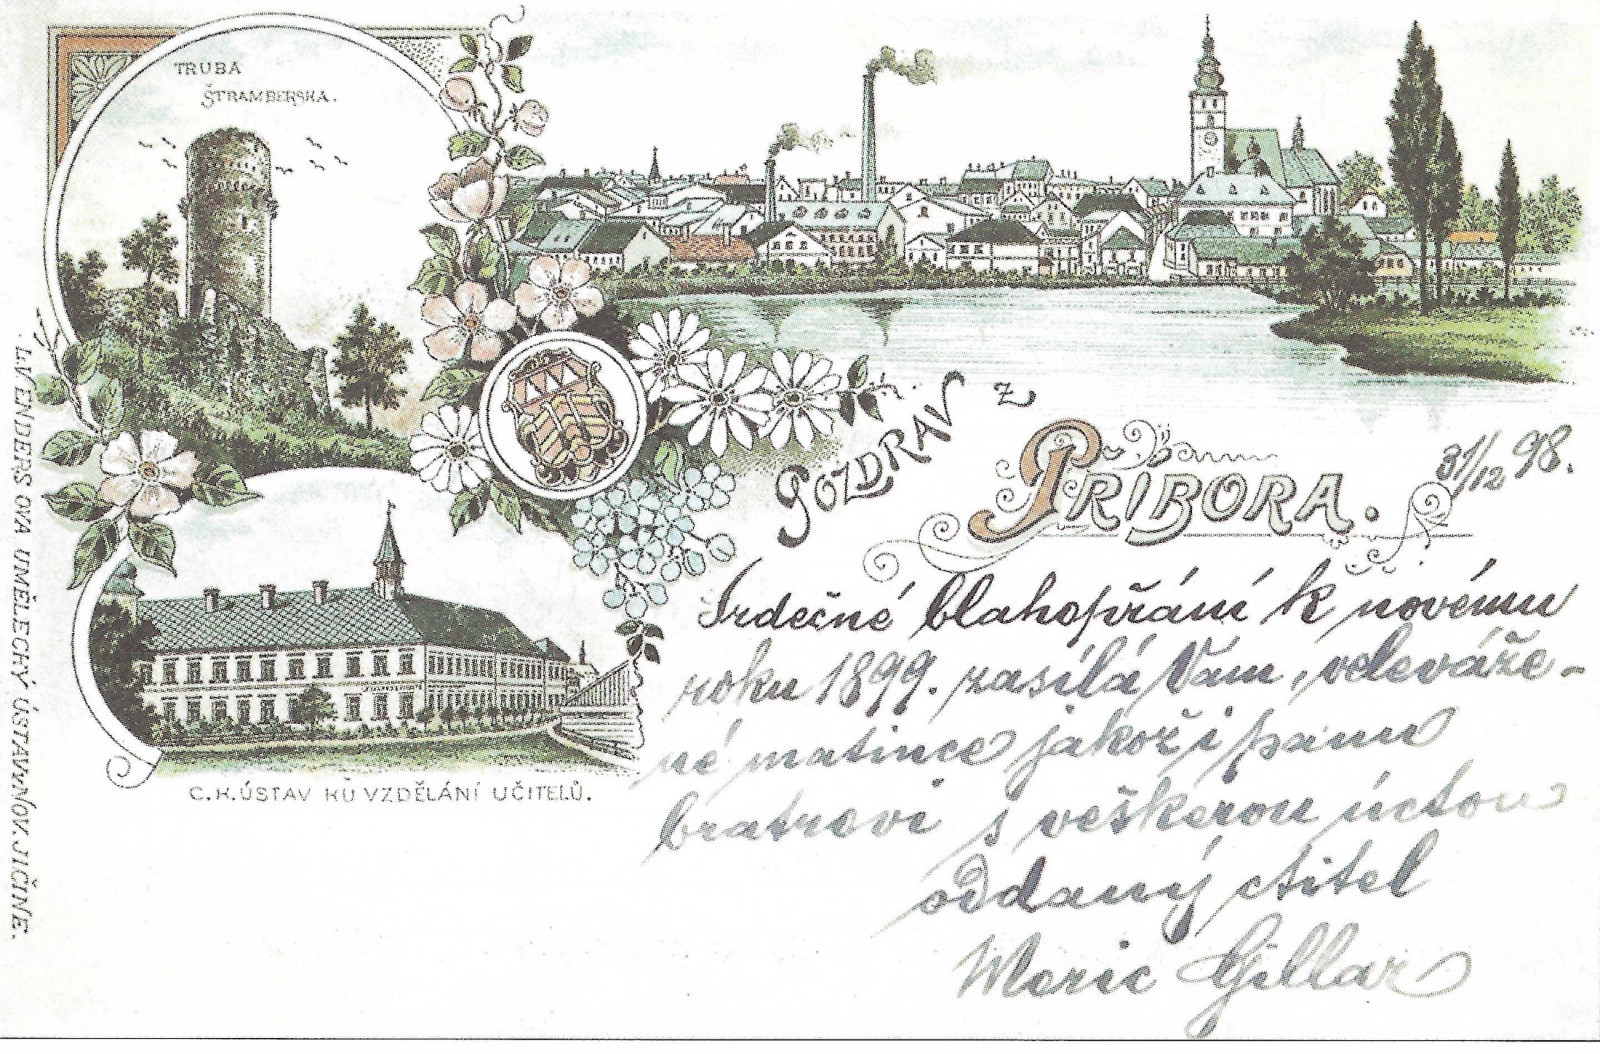 TRUBA
ŠTRAMBERSKA.
POZDRAV z
PŘÍBORA.
31/12 98.
Srdečné blahopřání k novému
roku 1899. zasílá Vám, veleváže-
né matince jakož i pánu
bratrovi s veškerou úctou
oddaný ctitel
Moric Gillar
C.K. ÚSTAV KU VZDĚLÁNÍ UČITELŮ.
LAVENDERS OVA UMĚLECKÝ ÚSTAV v NOV. JIČÍNĚ.